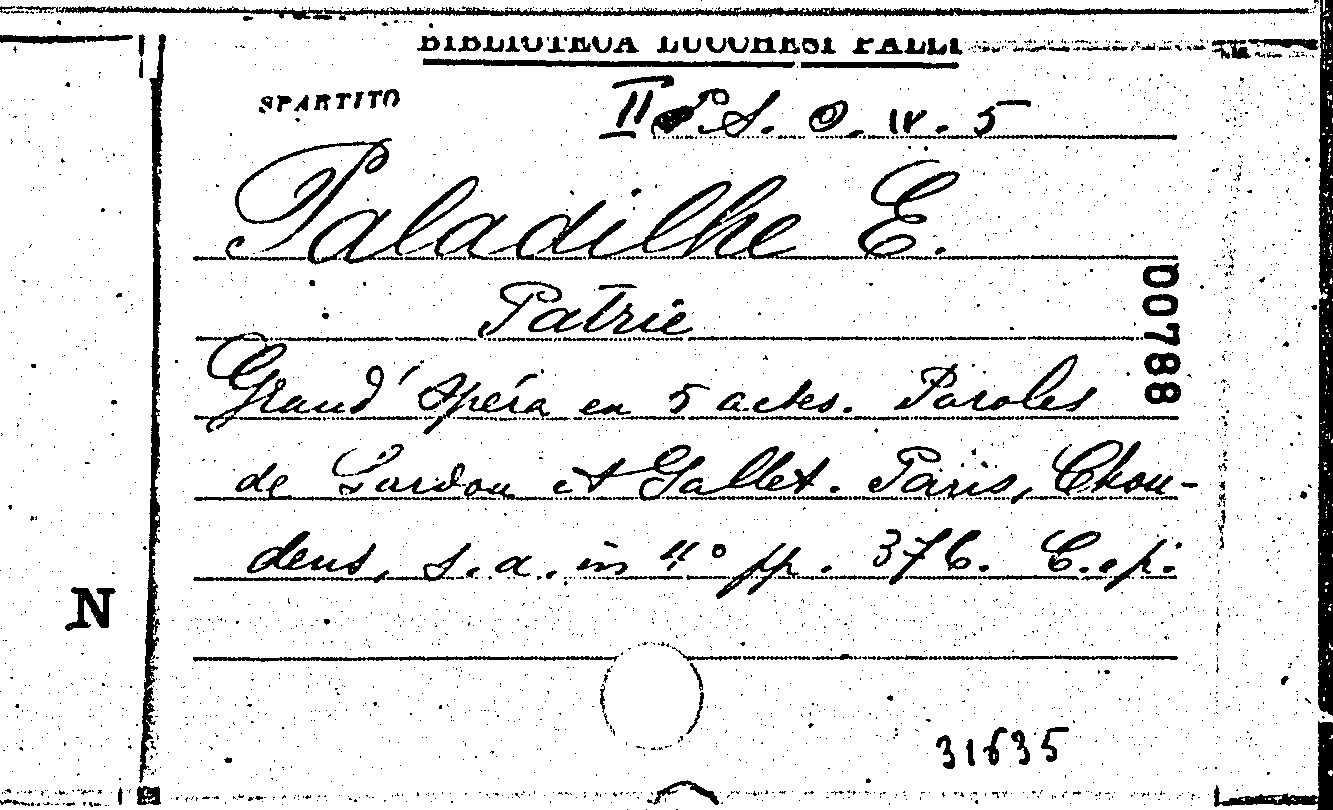 BIBLIOTECA LUCCHESI PALLI
SPARTITO
II P.S. O. IV. 5
Paladilhe E.
Patrie
00788
Grand' Opéra en 5 actes. Paroles
de Sardou et Gallet. Paris, Chou-
dens, s.a. in 4° pp. 376. C.e p.
N
31635